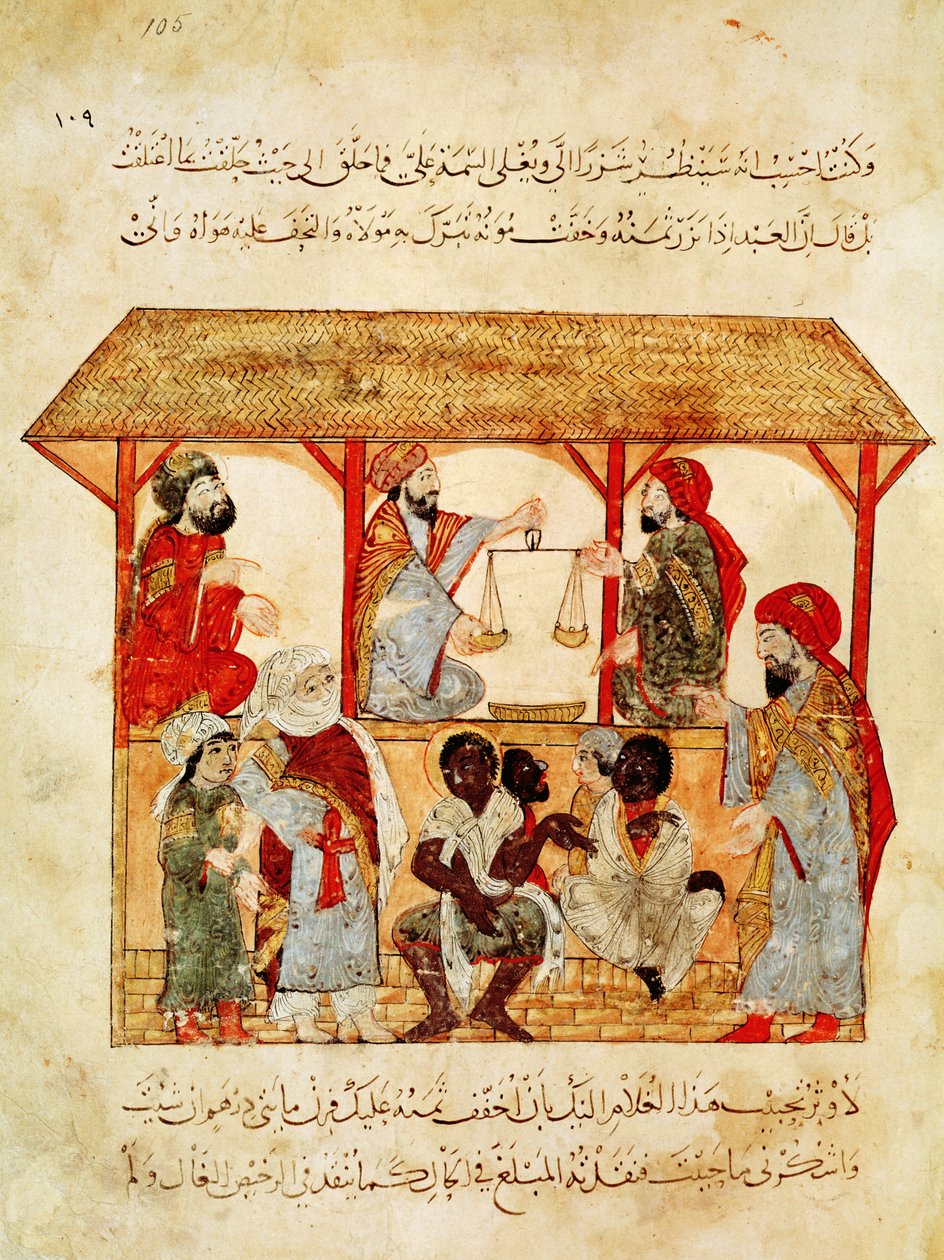 105
١٠٩
وكنت احسب انه سينظر شزرا الي ويغلي السمة علي فما حلق الى حيث حلقت بما اعتلقت
بل قال ان العبد اذا نزر ثمنه وخفت مونه تبرك به مولاه والتحف عليه هواه واني
لاوثر تحبيب هذا الغلام اليك بان اخفف ثمنه عليك فزن مايتي درهم ان شيت
واشكرني ما حييت فنقدته المبلغ في الحال كما ينقد في الرخيص الغال ولم